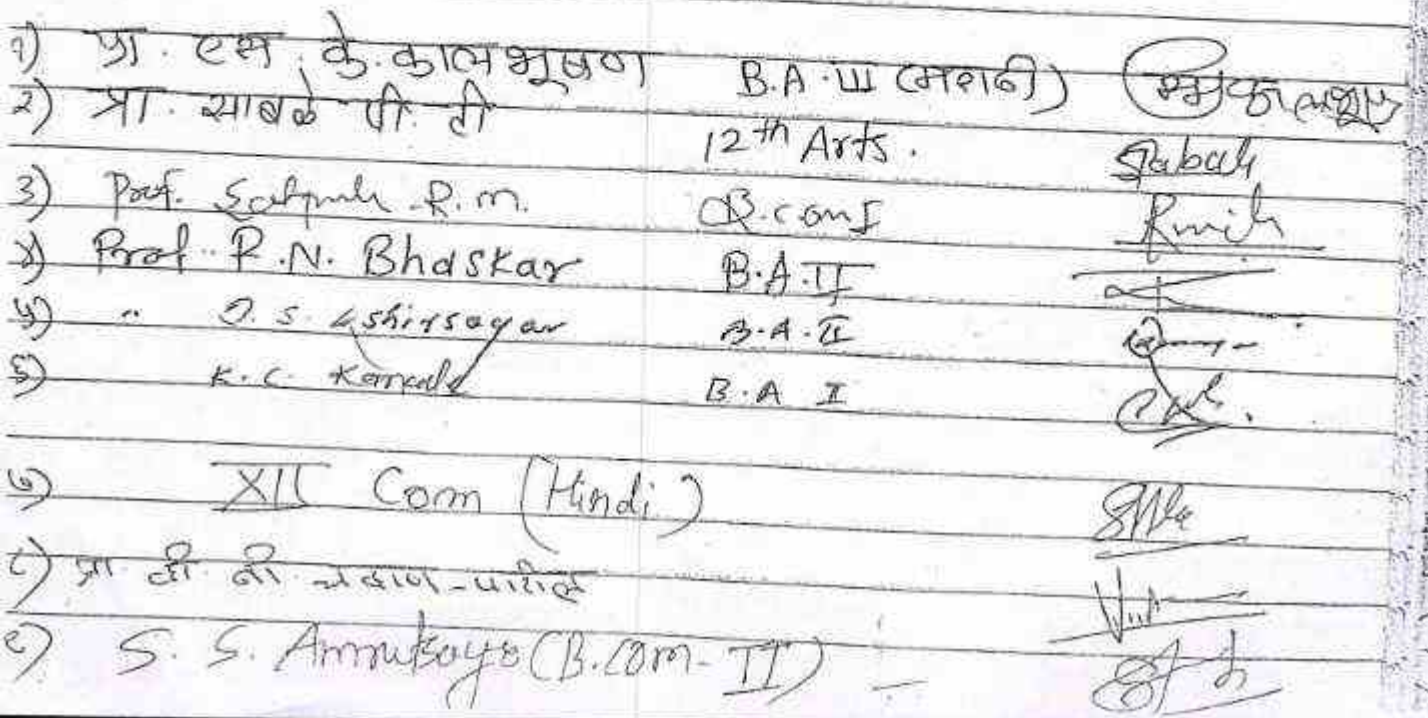 १) प्रा. एस. के. कालभूषण B.A.III (मराठी)
२) प्रा. साबळे पी. टी 12th Arts. Sabale
३) Prof. Satpute R.M. B.com I
४) Prof. R.N. Bhaskar B.A.II
५) " D.S. Kshirsagar B.A.II
६) K.C. Kamale B.A I
७) XII Com (Hindi)
८) प्रा. व्ही. बी. चव्हाण-पाटील
९) S. S. (B.Com-II)